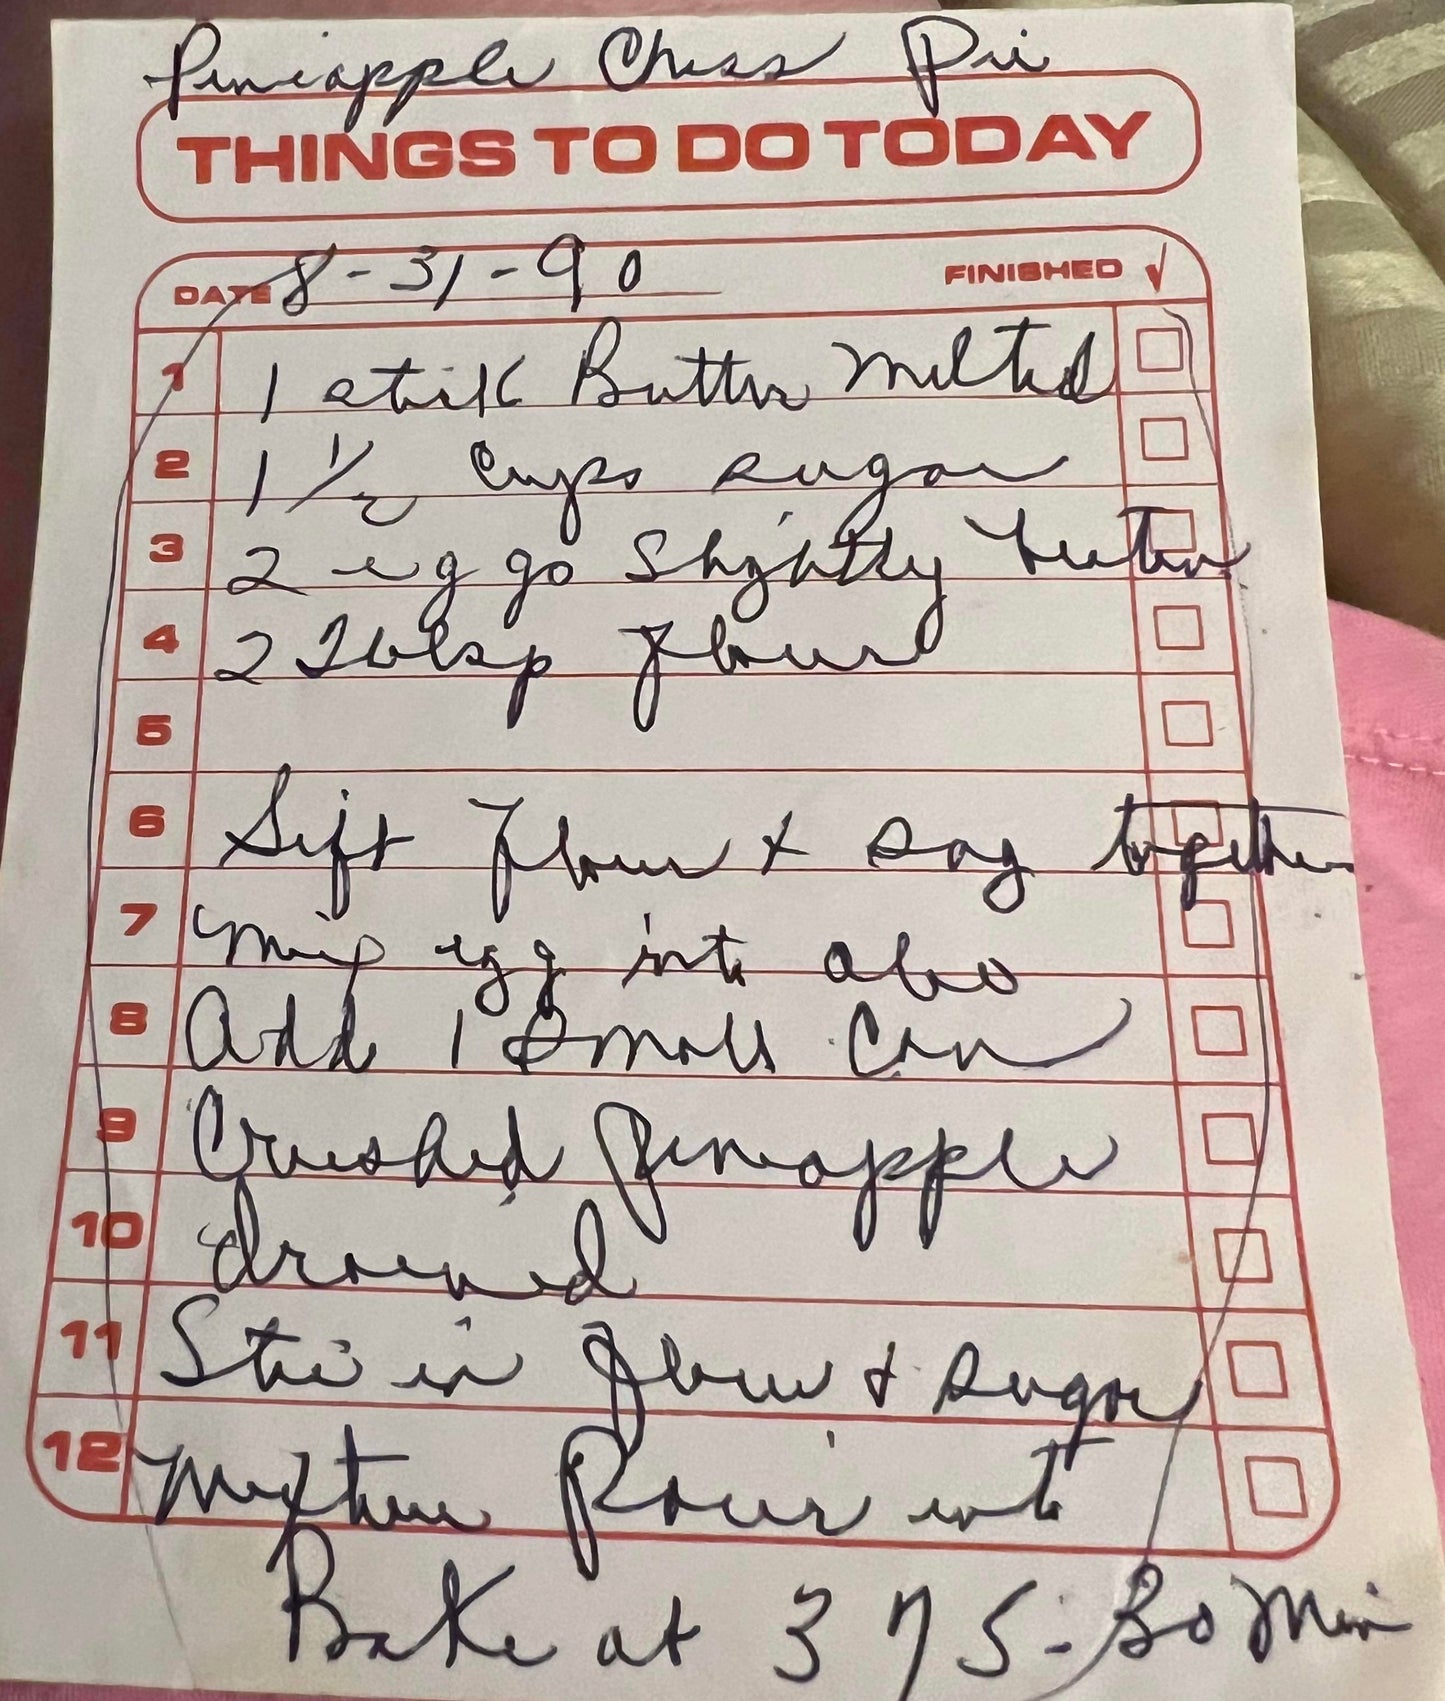 Pineapple Chess Pie
THINGS TO DO TODAY
DATE 8-31-90 FINISHED √
1 1 stick Butter Melted
2 1 1/2 cups sugar
3 2 eggs Slightly beaten
4 2 Tblsp flour
5
6 Sift flour & sug together
7 Mix egg into also
8 Add 1 Small Can
9 Crushed Pineapple
10 drained
11 Stir in flour & sugar
12 Mixture Pour into
Bake at 375 - 30 Min